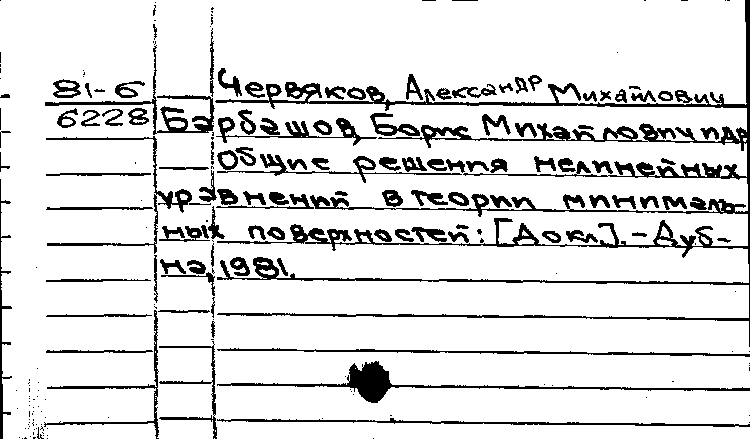 81-6 Червяков, Александр Михайлович
6228 Барбашов, Борис Михайлович и др
Общие решения нелинейных
уравнений в теории минималь-
ных поверхностей: [Докл.]. - Дуб-
на, 1981.